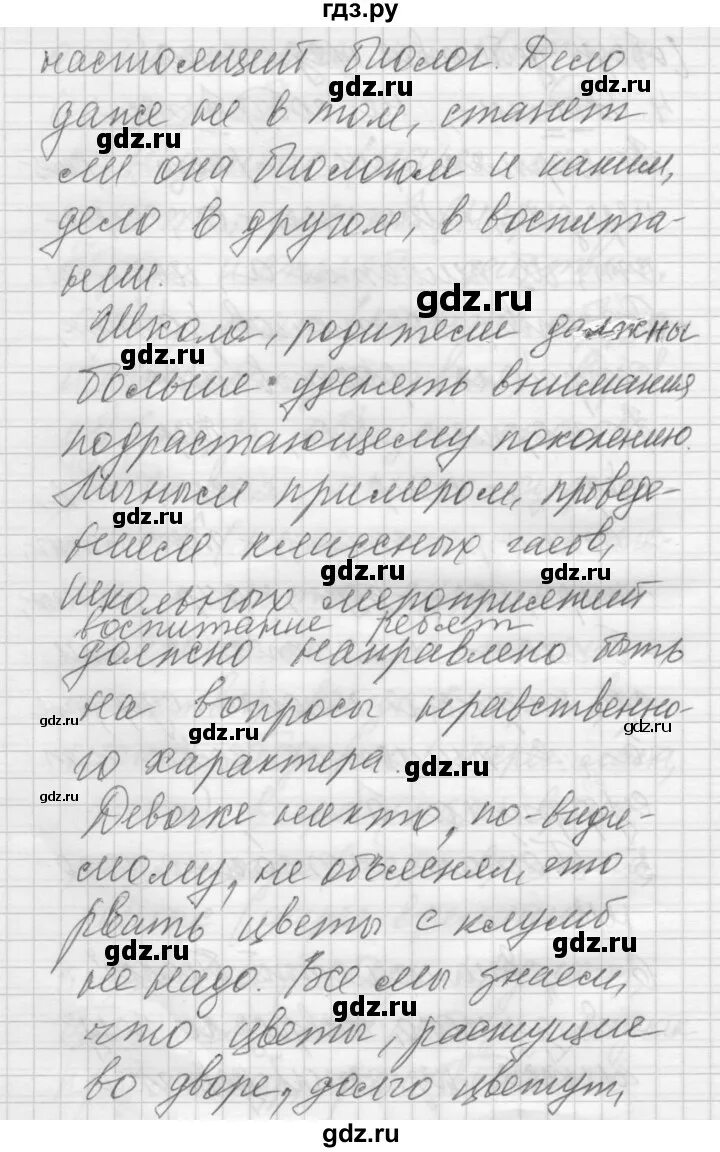 гдз.ру
настоящий биолог. Дело
gdz.ru
gdz.ru
даже не в том, станет
gdz.ru
ли она биологом и каким,
дело в другом, в воспита-
нии.
gdz.ru
Школа, родители должны
gdz.ru
больше уделять внимания
подрастающему поколению.
Личным примером, проведе-
gdz.ru
нием классных часов,
gdz.ru
gdz.ru
школьных мероприятий
воспитание ребят
должно направлено быть
на вопросы нравственно-
gdz.ru
gdz.ru
gdz.ru
го характера.
gdz.ru
gdz.ru
Девочке никто, по-види-
мому, не объяснял, что
рвать цветы с клумб
gdz.ru
gdz.ru
не надо. Все мы знаем,
gdz.ru
что цветы, растущие
во дворе, долго цветут,
gdz.ru